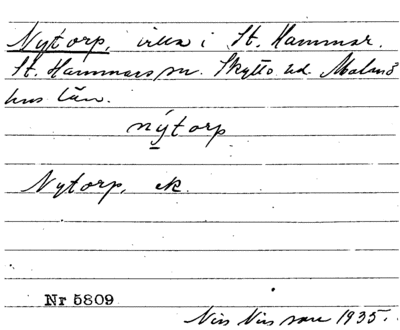 Nytorp, villa i St. Hammar.
St. Hammars sn. Skytts hd. Malmö
hus län.
nýtorp
Nytorp, ek.
Nr 5809
Nils Nilsson 1935.